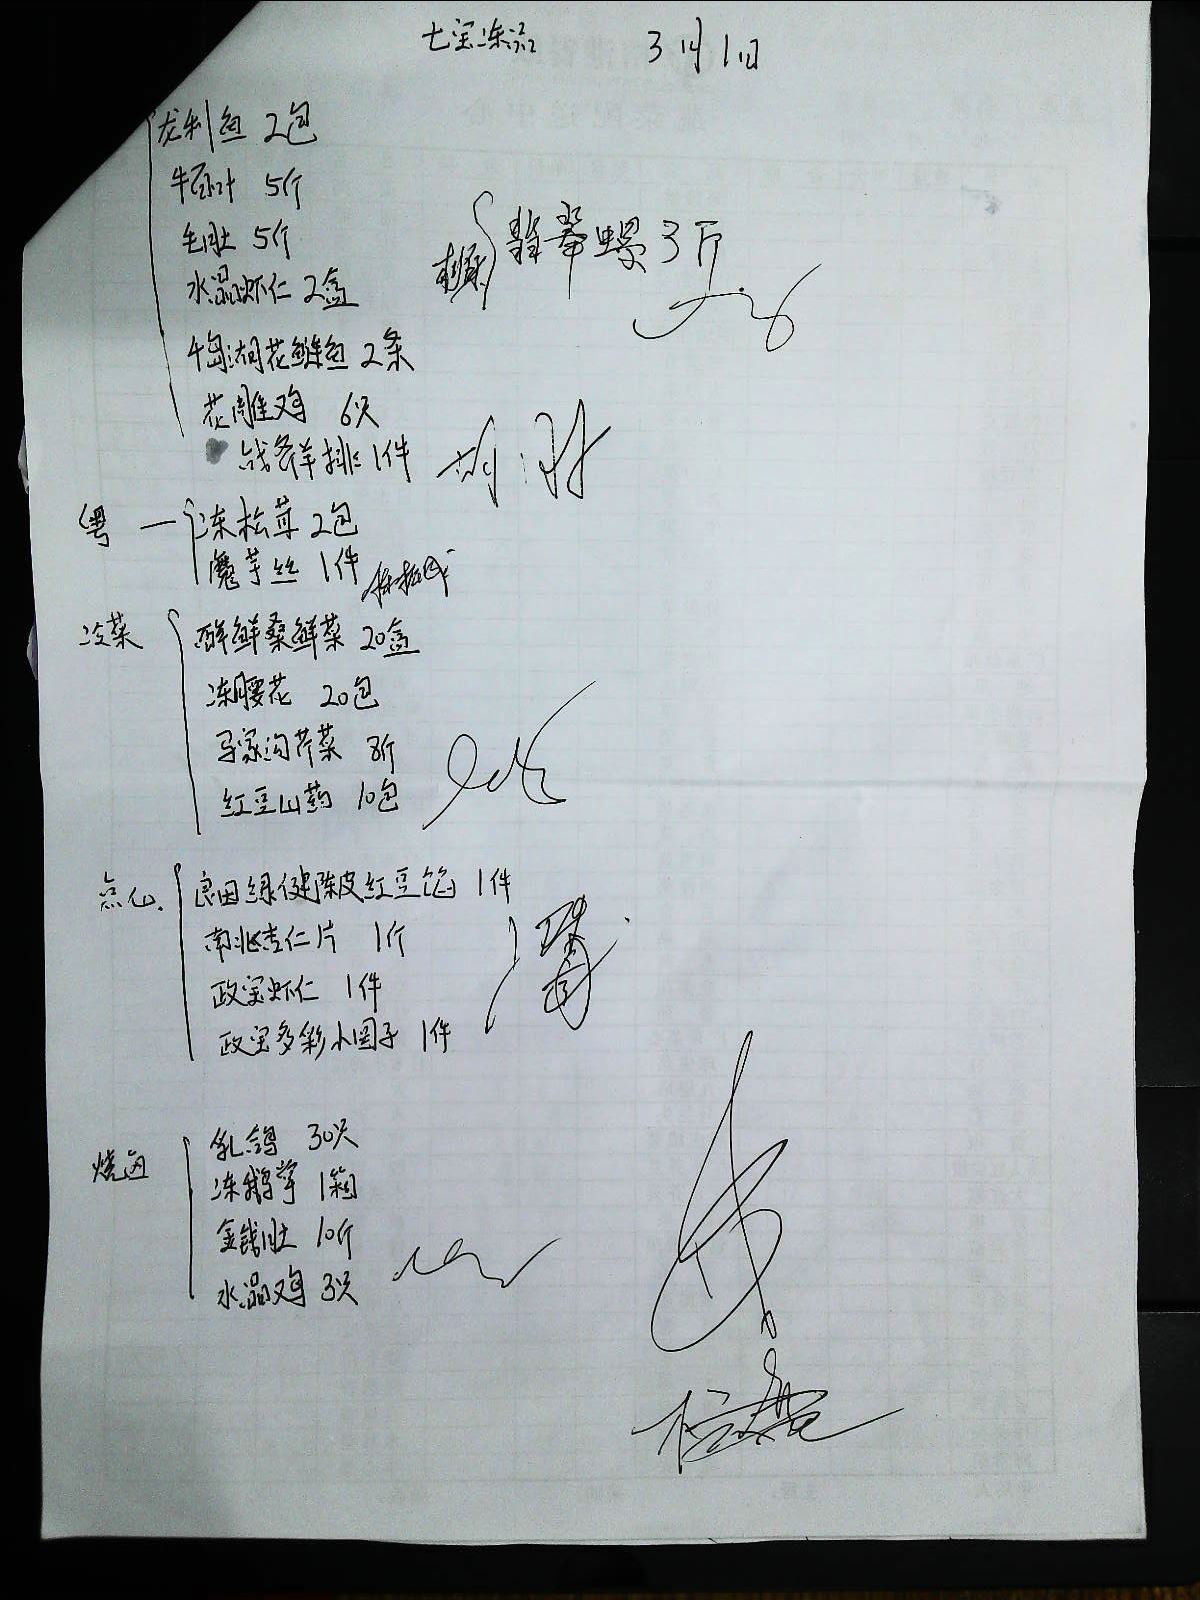 七宝冻品 3月1日
龙利鱼 2包
牛百叶 5斤
毛肚 5斤
翡翠螺 3斤
水晶虾仁 2盒
千岛湖花鲢鱼 2条
花雕鸡 6只
战斧羊排 1件
粤 一 冻松茸 2包
魔芋丝 1件
冷菜
鲜桑鲜菜 20盒
冻腰花 20包
马家沟芹菜 8斤
红豆山药 10包
点心
良田绿健陈皮红豆馅 1件
南北杏仁片 1斤
政宝虾仁 1件
政宝多彩小圆子 1件
烧卤
乳鸽 30只
冻鹅掌 1箱
金钱肚 10斤
水晶鸡 3只